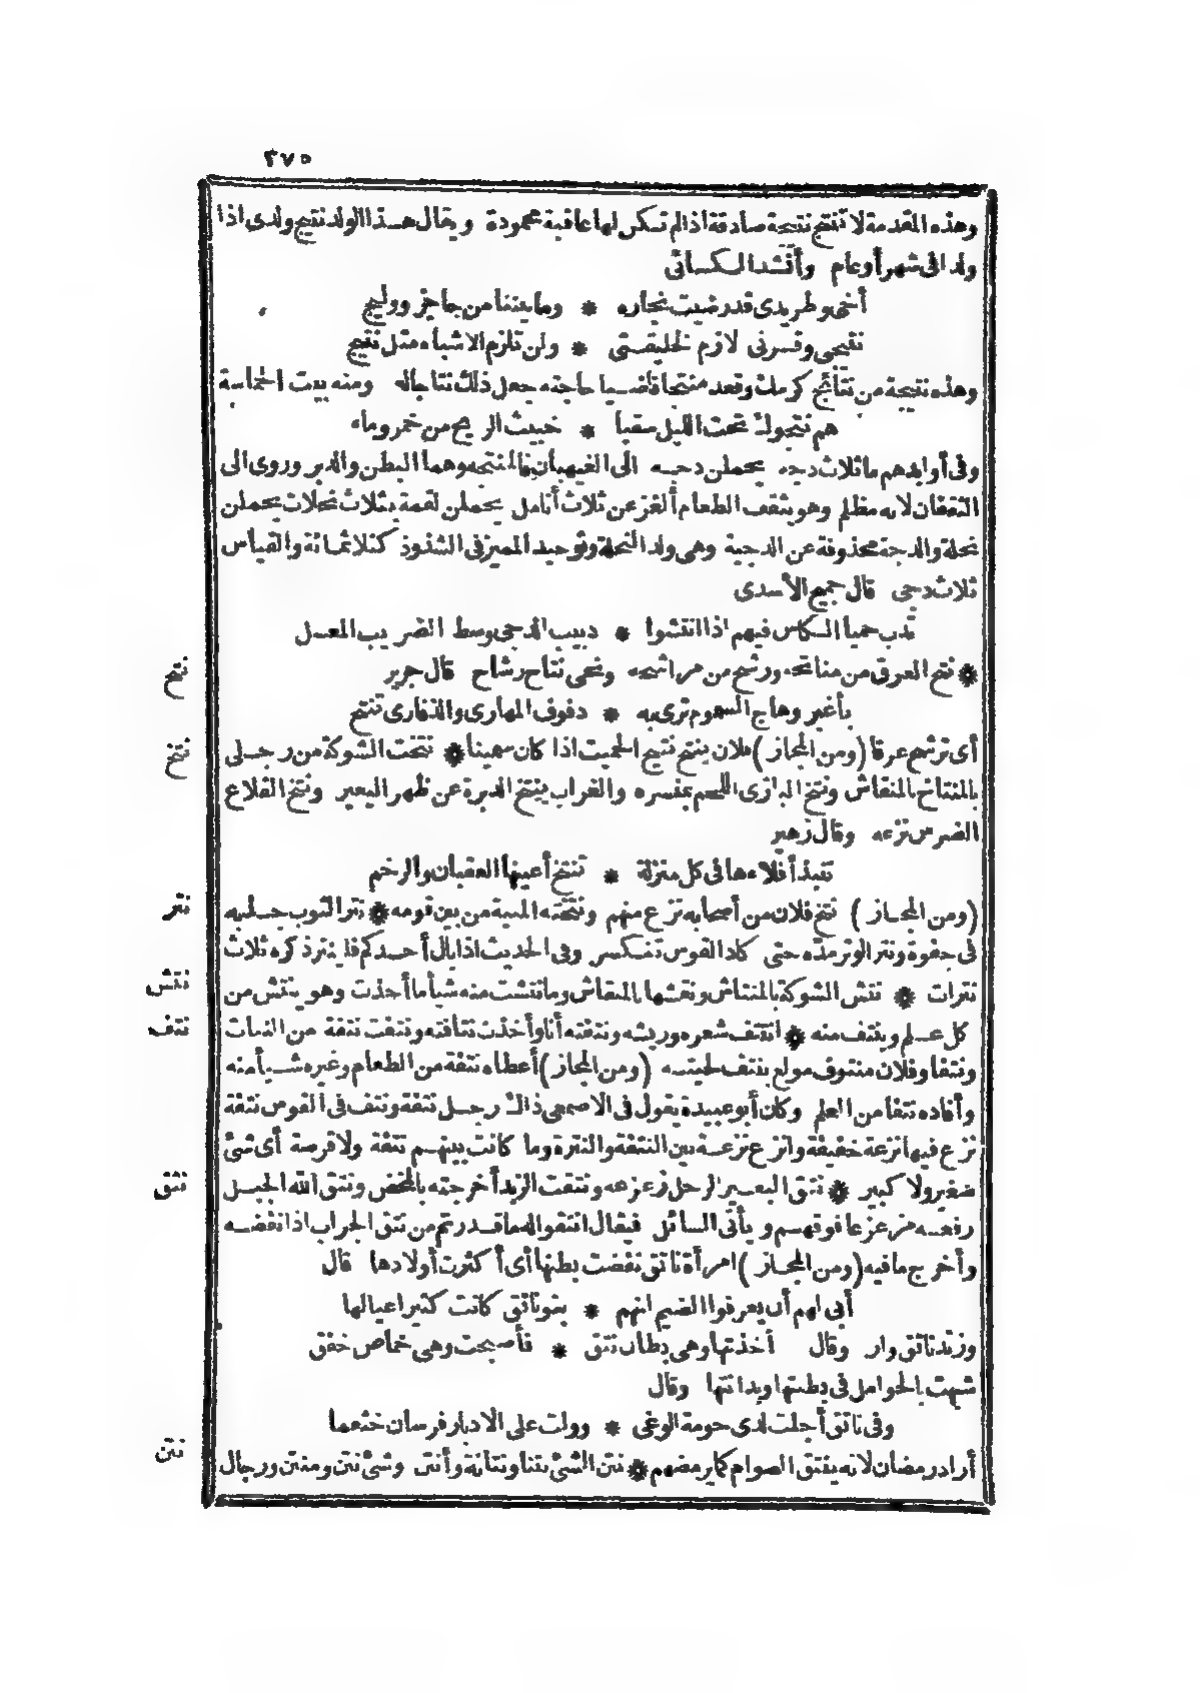 ٢٧٥
وهذه المقدمة لا تنتج نتيجة صادقة اذا لم تكن لها عاقبة محمودة ويقال هذا الولد نتيج ولدى اذا
ولد فى شهر أو عام وأنشد الكسائى
أخى وطريدى قد رضيت نجاره * وما بيننا من حاجز ووليج
نتيجى وقسرنى لازم لخليقتى * ولن تلزم الاشباه مثل نتيج
وهذه نتيجة من نتائج كرمك وقعد منتجا قاضيا حاجته جعل ذلك نتاجا له ومنه بيت الحماسة
هم نتجوك تحت الليل سقبا * خبيث الريح من خمر وماء
وفى أوابدهم ما ثلاث دجه يحملن دجه الى الغيهبان فالمنتجه وهما البطن والدبر وروى الى
الثقفان لانه مظلم وهو يثقف الطعام ألغز عن ثلاث أنامل يحملن لقمة بثلاث نحلات يحملن
نحلة والدجة محذوفة عن الدجية وهى ولد النحلة وتوحيد المميز فى الشذوذ كثلاثمائة والقياس
ثلاث دجى قال جميع الأسدى
تدب حميا الكاس فيهم اذا انتشوا * دبيب الدجى وسط الضريب المعسل
نتح
* نتح العرق من مناتحه ورشح من مراشحه ونحى نتاح رشاح قال جرير
بأغبر وهاج السموم ترى به * دفوف المهارى والذفارى تنتح
نتخ
أى ترشح عرقا (ومن المجاز) فلان ينتح نتيح الحميت اذا كان سمينا * نتخت الشوكة من رجلى
بالمنتاخ بالمنقاش ونتخ البازى اللحم بمنسره والغراب ينتخ الدبرة عن ظهر البعير ونتخ القلاع
الضرس نزعه وقال زهير
تنبذ أفلاءها فى كل منزلة * تنتخ أعينها العقبان والرخم
نتر
(ومن المجاز) نتخ فلان من أصحابه نزع منهم ونتخته المنية من بين قومه * نتر الثوب جذبه
فى جفوة ونتر الوتر مدّه حتى كاد القوس تنكسر وفى الحديث اذا بال أحدكم فلينتر ذكره ثلاث
نتش
نترات * نتش الشوكة بالمنتاش ونقشها بالمنقاش وما نتشت منه شيأ ما أخذت وهو ينتش من
نتف
كل علم وينتف منه * انتتف شعره وريشه ونتفته أنا وأخذت نتافته ونتفت نتفة من النبات
ونتفا وفلان منتوف مولع بنتف لحيته (ومن المجاز) أعطاه نتفة من الطعام وغيره شيأ منه
وأفاده نتفا من العلم وكان أبو عبيدة يقول فى الاصمعى ذاك رجل نتفة ونتف فى القوس نتفة
نزع فيها نزعة خفيفة وانزع نزعة بين النتفة والنترة وما كانت بينهم نتفة ولا قرصة أى شئ
نتق
صغير ولا كبير * نتق البعير الرحل زعزعه ونتقت الزبد أخرجته بالمخض ونتق الله الجبل
رفعه مزعزعا فوقهم ويأتى السائل فيقال انتقوا له ما قدرتم من نتق الجراب اذا نفضه
وأخرج ما فيه (ومن المجاز) امرأة ناتق نفضت بطنها أى أكثرت أولادها قال
أبى لهم أن يعرفوا الضيم انهم * بنو ناتق كانت كثيرا عيالها
وزند ناتق وار وقال أخذتها وهى بطان نتق * فأصبحت وهى خماص خفق
شبهت بالحوامل فى بطنتها وبدانتها وقال
وفى ناتق أجلت لدى حومة الوغى * وولت على الادبار فرسان خثعما
نتن
أراد رمضان لانه ينتق الصوام كما يرمضهم * نتن الشئ نتنا ونتانة وأنتن وشئ نتن ومنتن ورجال